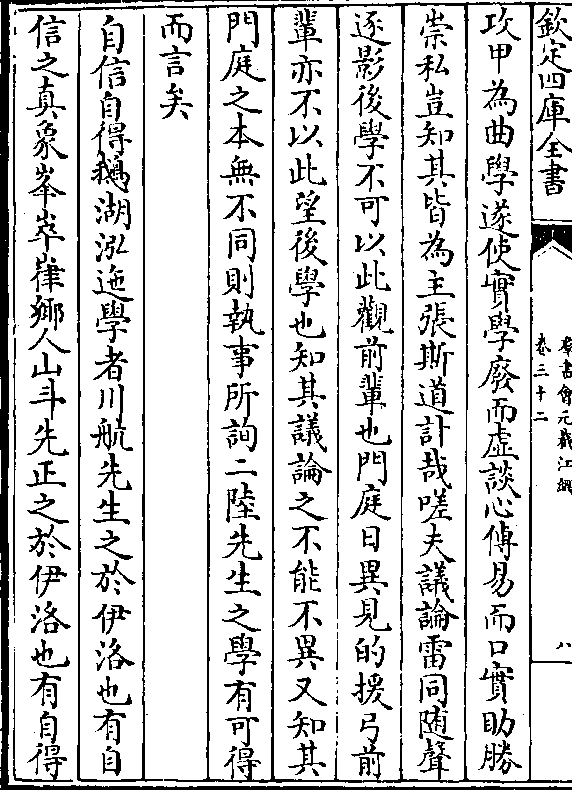 欽定四庫全書
群書會元截江網
卷三十二
八
攻甲為曲學遂使實學廢而虛談心傳易而口實助勝
崇私豈知其皆為主張斯道計哉嗟夫議論雷同随聲
逐影後學不可以此觀前輩也門庭日異見的援弓前
輩亦不以此望後學也知其議論之不能不異又知其
門庭之本無不同則執事所詢二陸先生之學有可得
而言矣
自信自得鵝湖泓迤學者川航先生之於伊洛也有自
信之真象峯崒嵂鄉人山斗先正之於伊洛也有自得